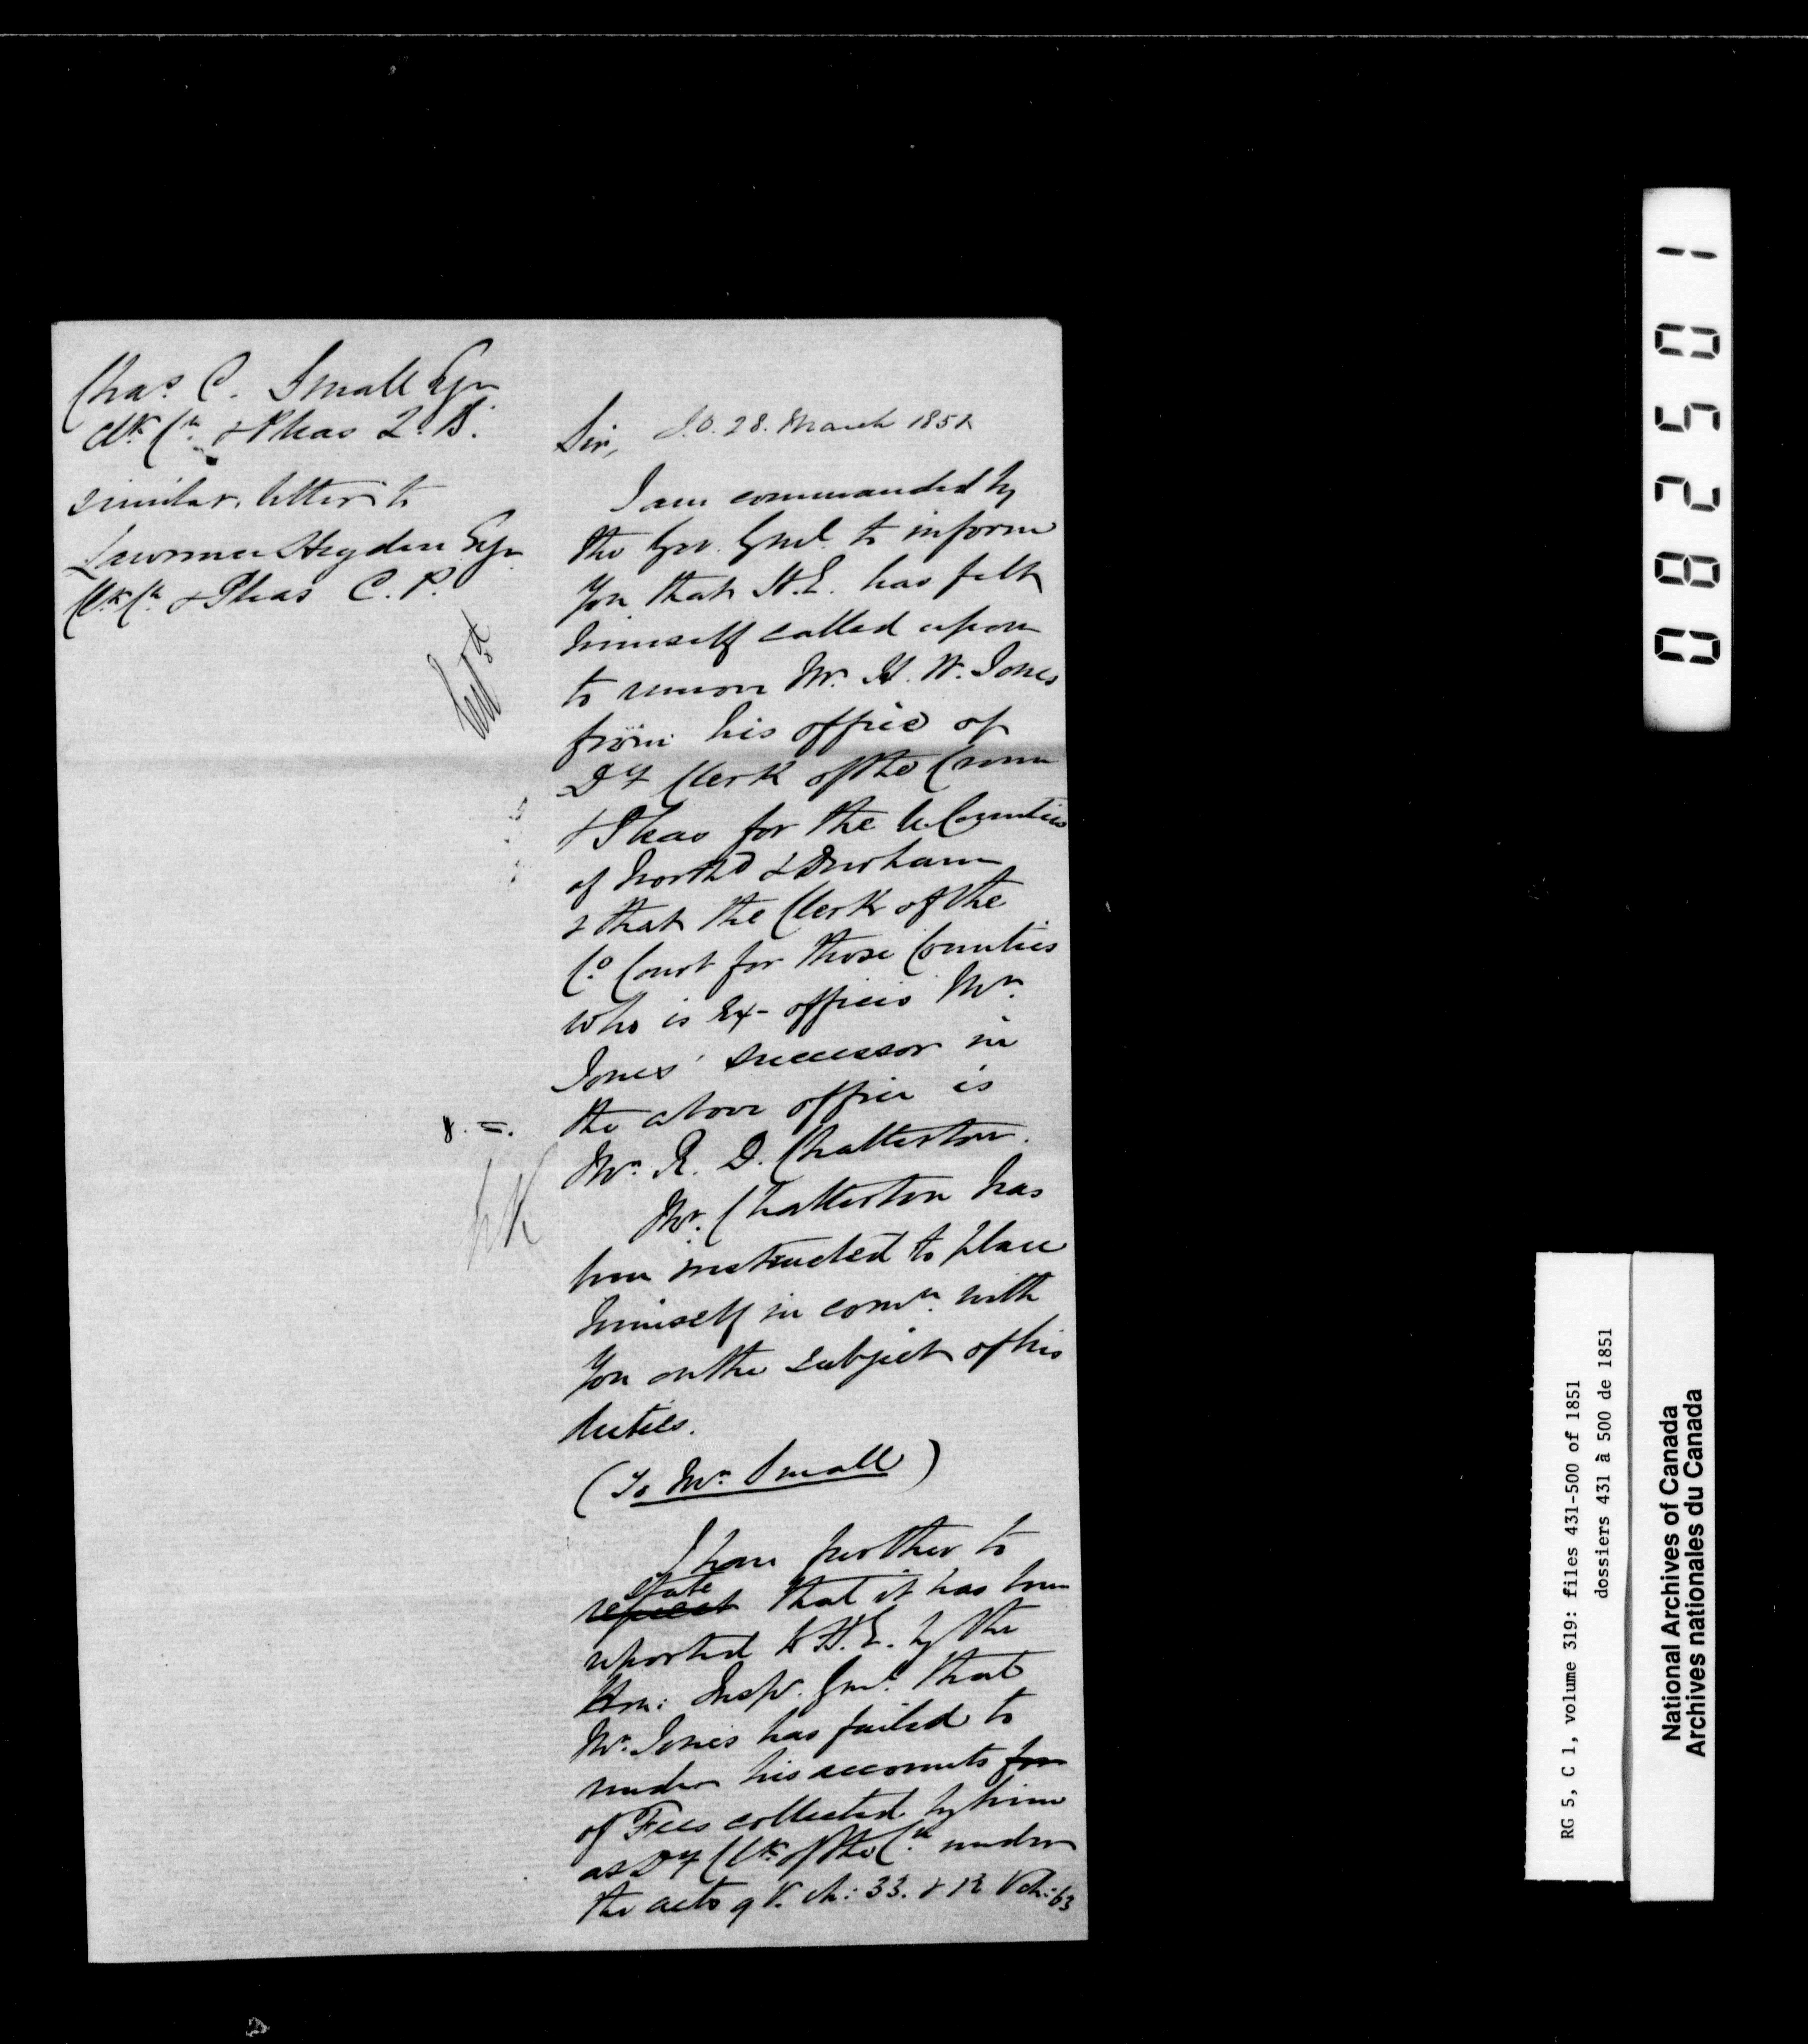 Chas. C. Small Esqr
Clk Cn. & Pleas Q. B.
similar letter to
Lawrence Heyden Esqr
Clk Cn & Pleas C. P.
28. March 1851
Sir,
I am commanded by
the Gov. Genl. to inform
You that H.E. has felt
himself called upon
to remove Mr. H. W. Jones
from his office of
Dy Clerk of the Crown
& Pleas for the U. Counties
of Northd & Durham
& that the Clerk of the
Co. Court for those Counties
who is Ex-officio Mr.
Jones' successor in
the above office is
Mr. R. D. Chatterton.
Mr. Chatterton has
been instructed to place
himself in comn. with
You on the subject of his
duties.
(To Mr. Small)
I have further to
state
request that it has been
reported to H.E. by the
Hon: Insp. Genl. that
Mr. Jones has failed to
render his accounts for
of Fees collected by him
as Dy Clk of the Cn. under
the acts 9 V. ch: 33. & 12 V ch: 63
082501
RG 5, C 1, volume 319: files 431-500 of 1851
dossiers 431 à 500 de 1851
National Archives of Canada
Archives nationales du Canada